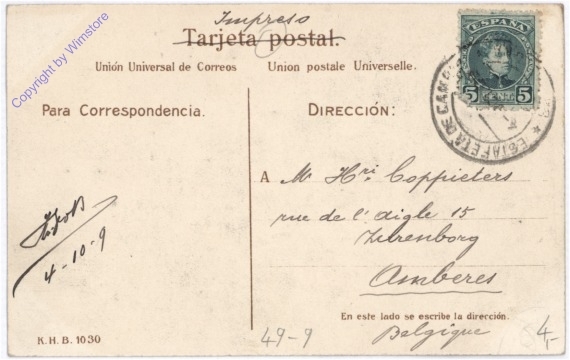 Impreso
Tarjeta postal.
Unión Universal de Correos Union postale Universelle.
ESPAÑA
5 CENT. 5
ESTAFETA DE
Copyright by Wimstore
Para Correspondencia.
DIRECCIÓN:
A Mr Hri Coppieters
rue de l'aigle 15
Zurenborg
Amberes
4-10-9
En este lado se escribe la dirección.
Belgique
K.H.B. 1030
49-9
4,-